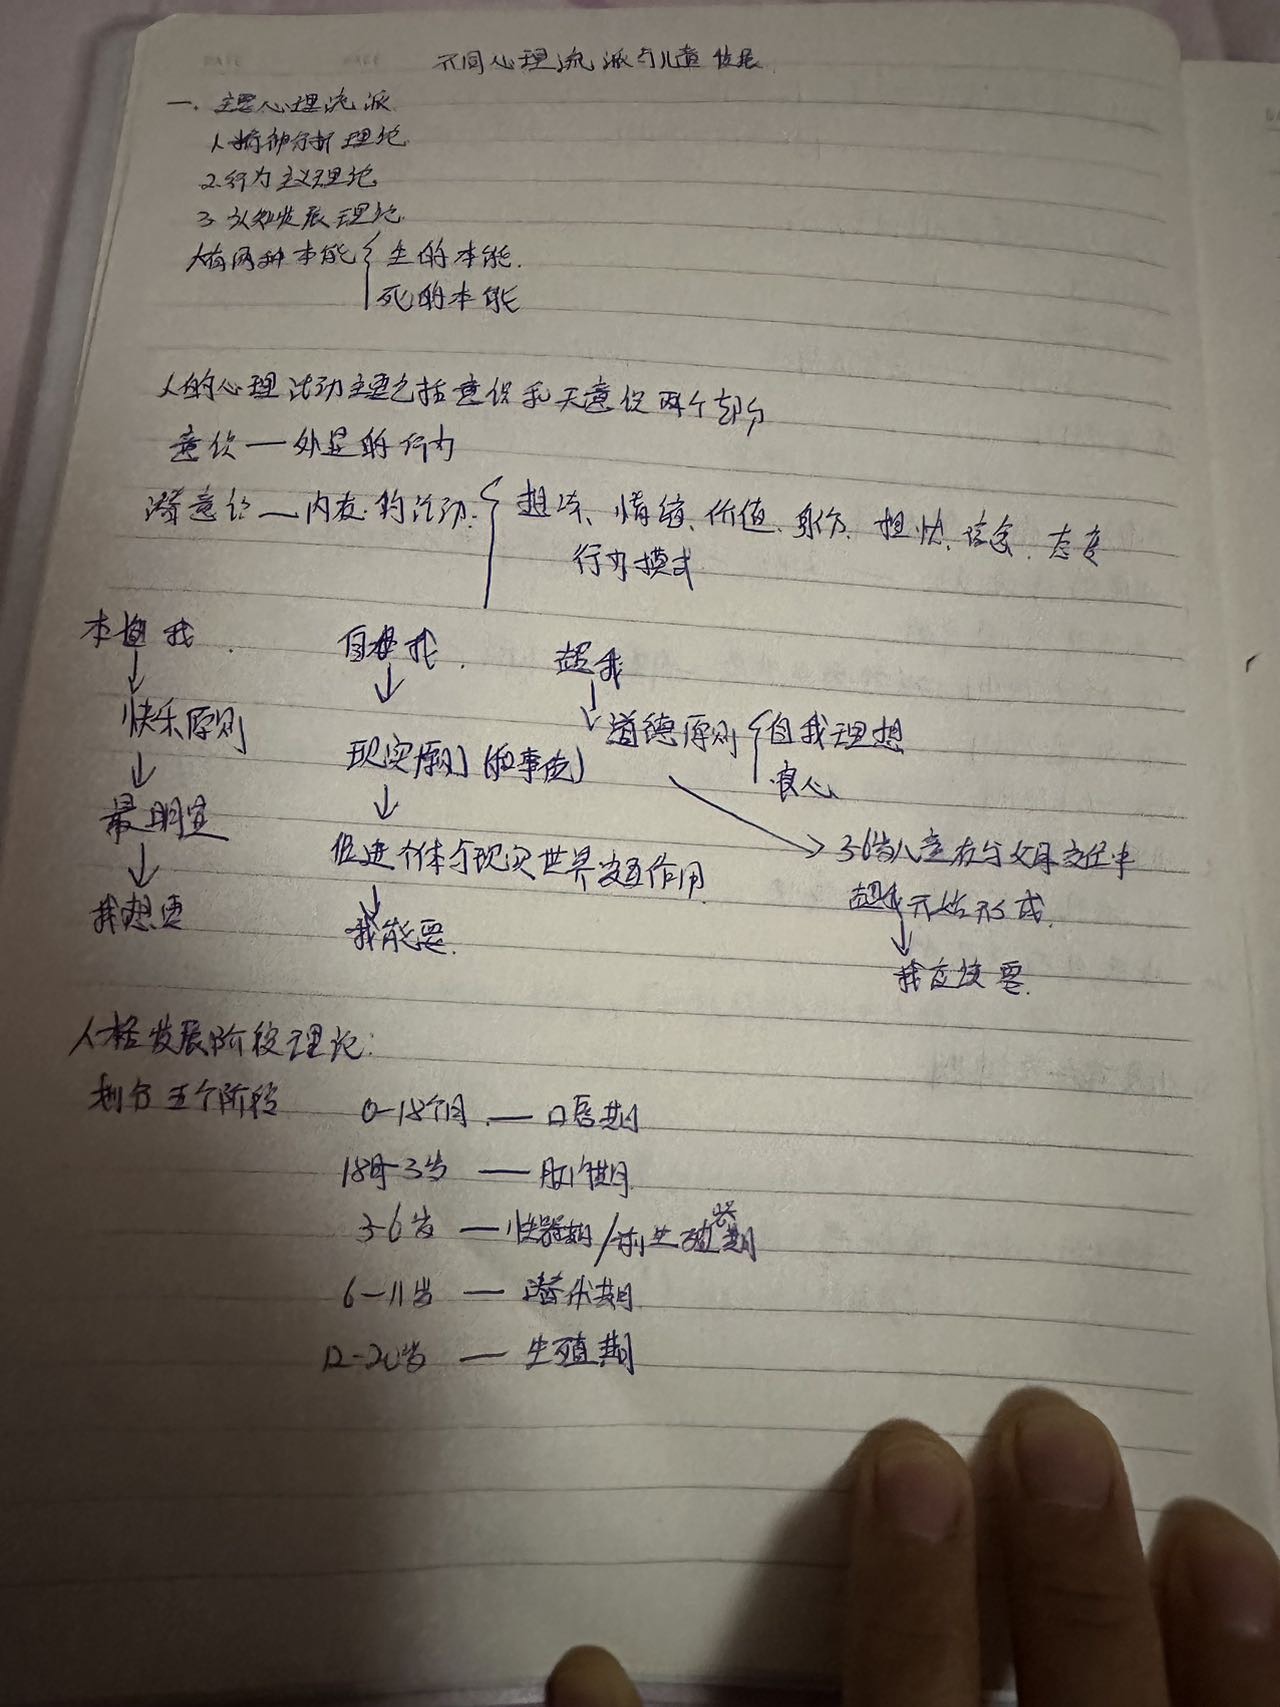 不同心理流派与儿童发展
一、主要心理流派
1.精神分析理论
2.行为主义理论
3.认知发展理论
人有两种本能 { 生的本能.
死的本能
人的心理活动主要包括意识和无意识两个部分
意识——外显的行为
潜意识——内在的活动: { 想法、情绪、价值、身份、担忧、信念、态度
行为模式
本我. 自我. 超我
↓ ↓ ↓
快乐原则 现实原则(和事佬) 道德原则 { 自我理想
良心
↓ ↓
最明显 促进个体与现实世界交互作用 → 3-6岁儿童在与父母交往中
超我开始形成.
↓ ↓ ↓
我想要 我能要. 我应该要.
人格发展阶段理论:
划分五个阶段 0-18个月 —— 口唇期
18月-3岁 —— 肛门期
3-6岁 —— 性器期/前生殖器期
6-11岁 —— 潜伏期
12-20岁 —— 生殖期